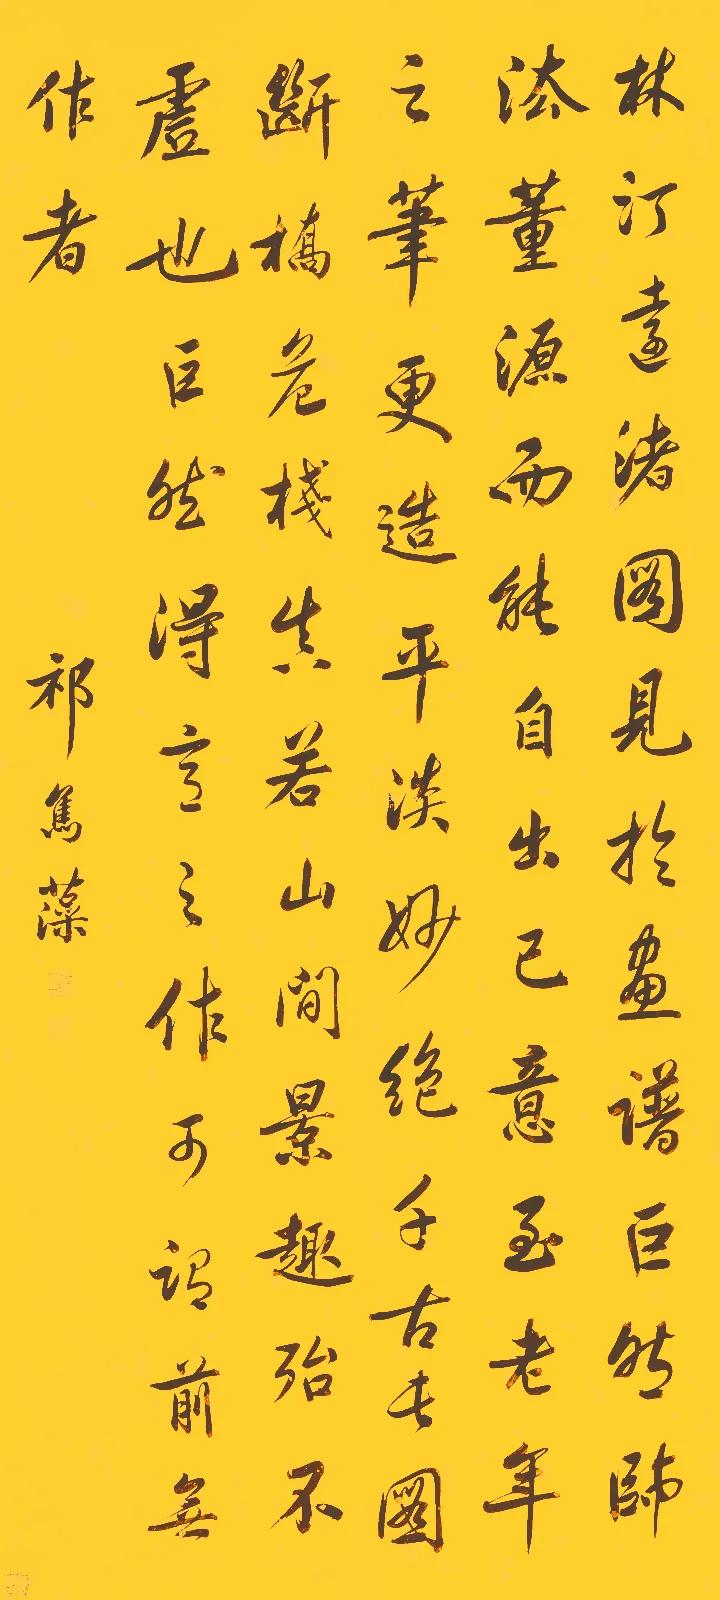 林汀遠渚圖見於畫譜巨然師
法董源而能自出己意至老年
之筆更造平淡妙絕千古圖
斷橋危棧真若山間景趣殆不
虛也巨然得意之作可謂前無
作者
祁寯藻